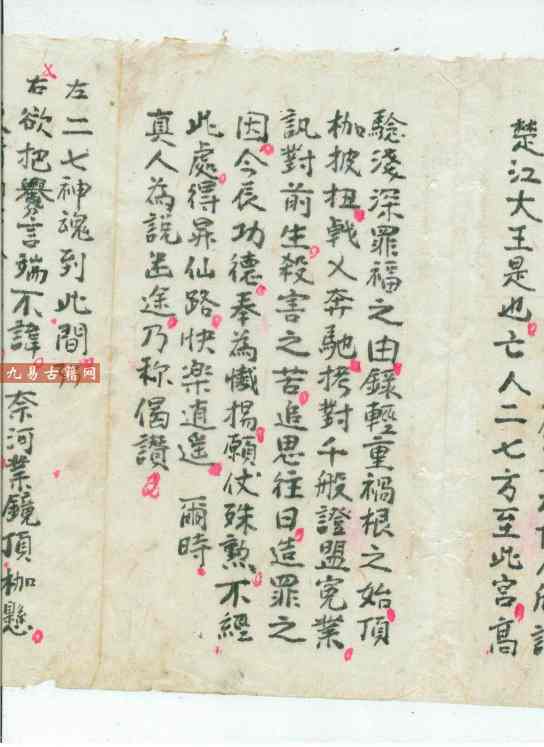 楚江大王是也亡人二七方至此宮高
驗淺深罪福之由錄輕重禍根之始頂
枷披扭戟乂奔馳拷對千般證盟冤業
訊對前生殺害之苦追思往日造罪之
因今辰功德奉為懺揚願仗殊勲不經
此處得昇仙路快楽逍遥 爾時
真人為說迷途乃称偈讚
左二七神魂到此間
右欲把言端不諱 奈河業鏡頂枷懸
九易古籍网